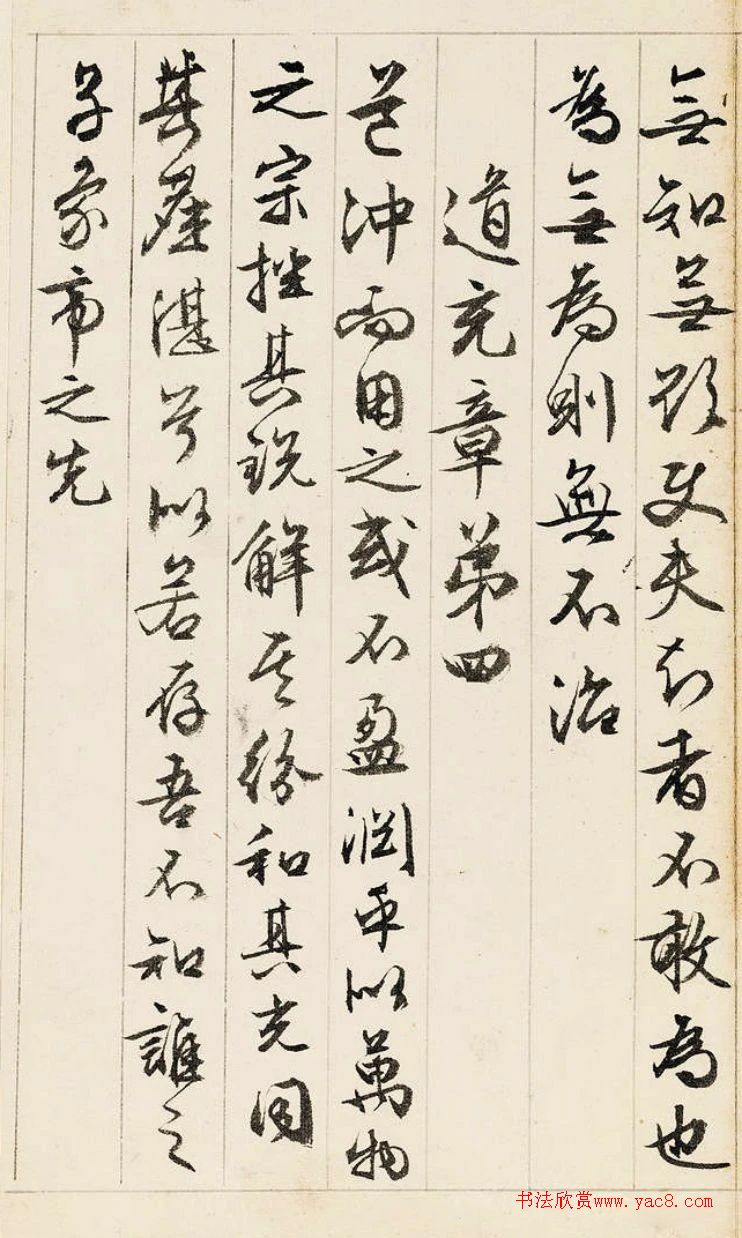 無知無欲使夫知者不敢為也
為無為則無不治
道充章第四
道沖而用之或不盈淵乎似萬物
之宗挫其銳解其紛和其光同
其塵湛兮似若存吾不知誰之
子象帝之先
书法欣赏www.yac8.com